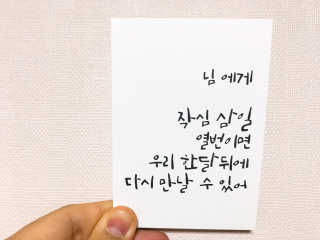 님 에게
작심 삼일
열번이면
우리 한달 뒤에
다시 만날 수 있어